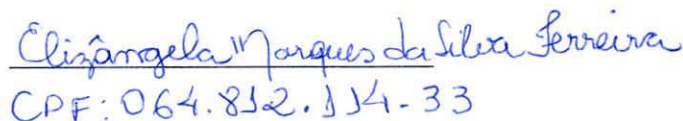 Elizângela Marques da Silva Ferreira
CPF: 064.812.114-33